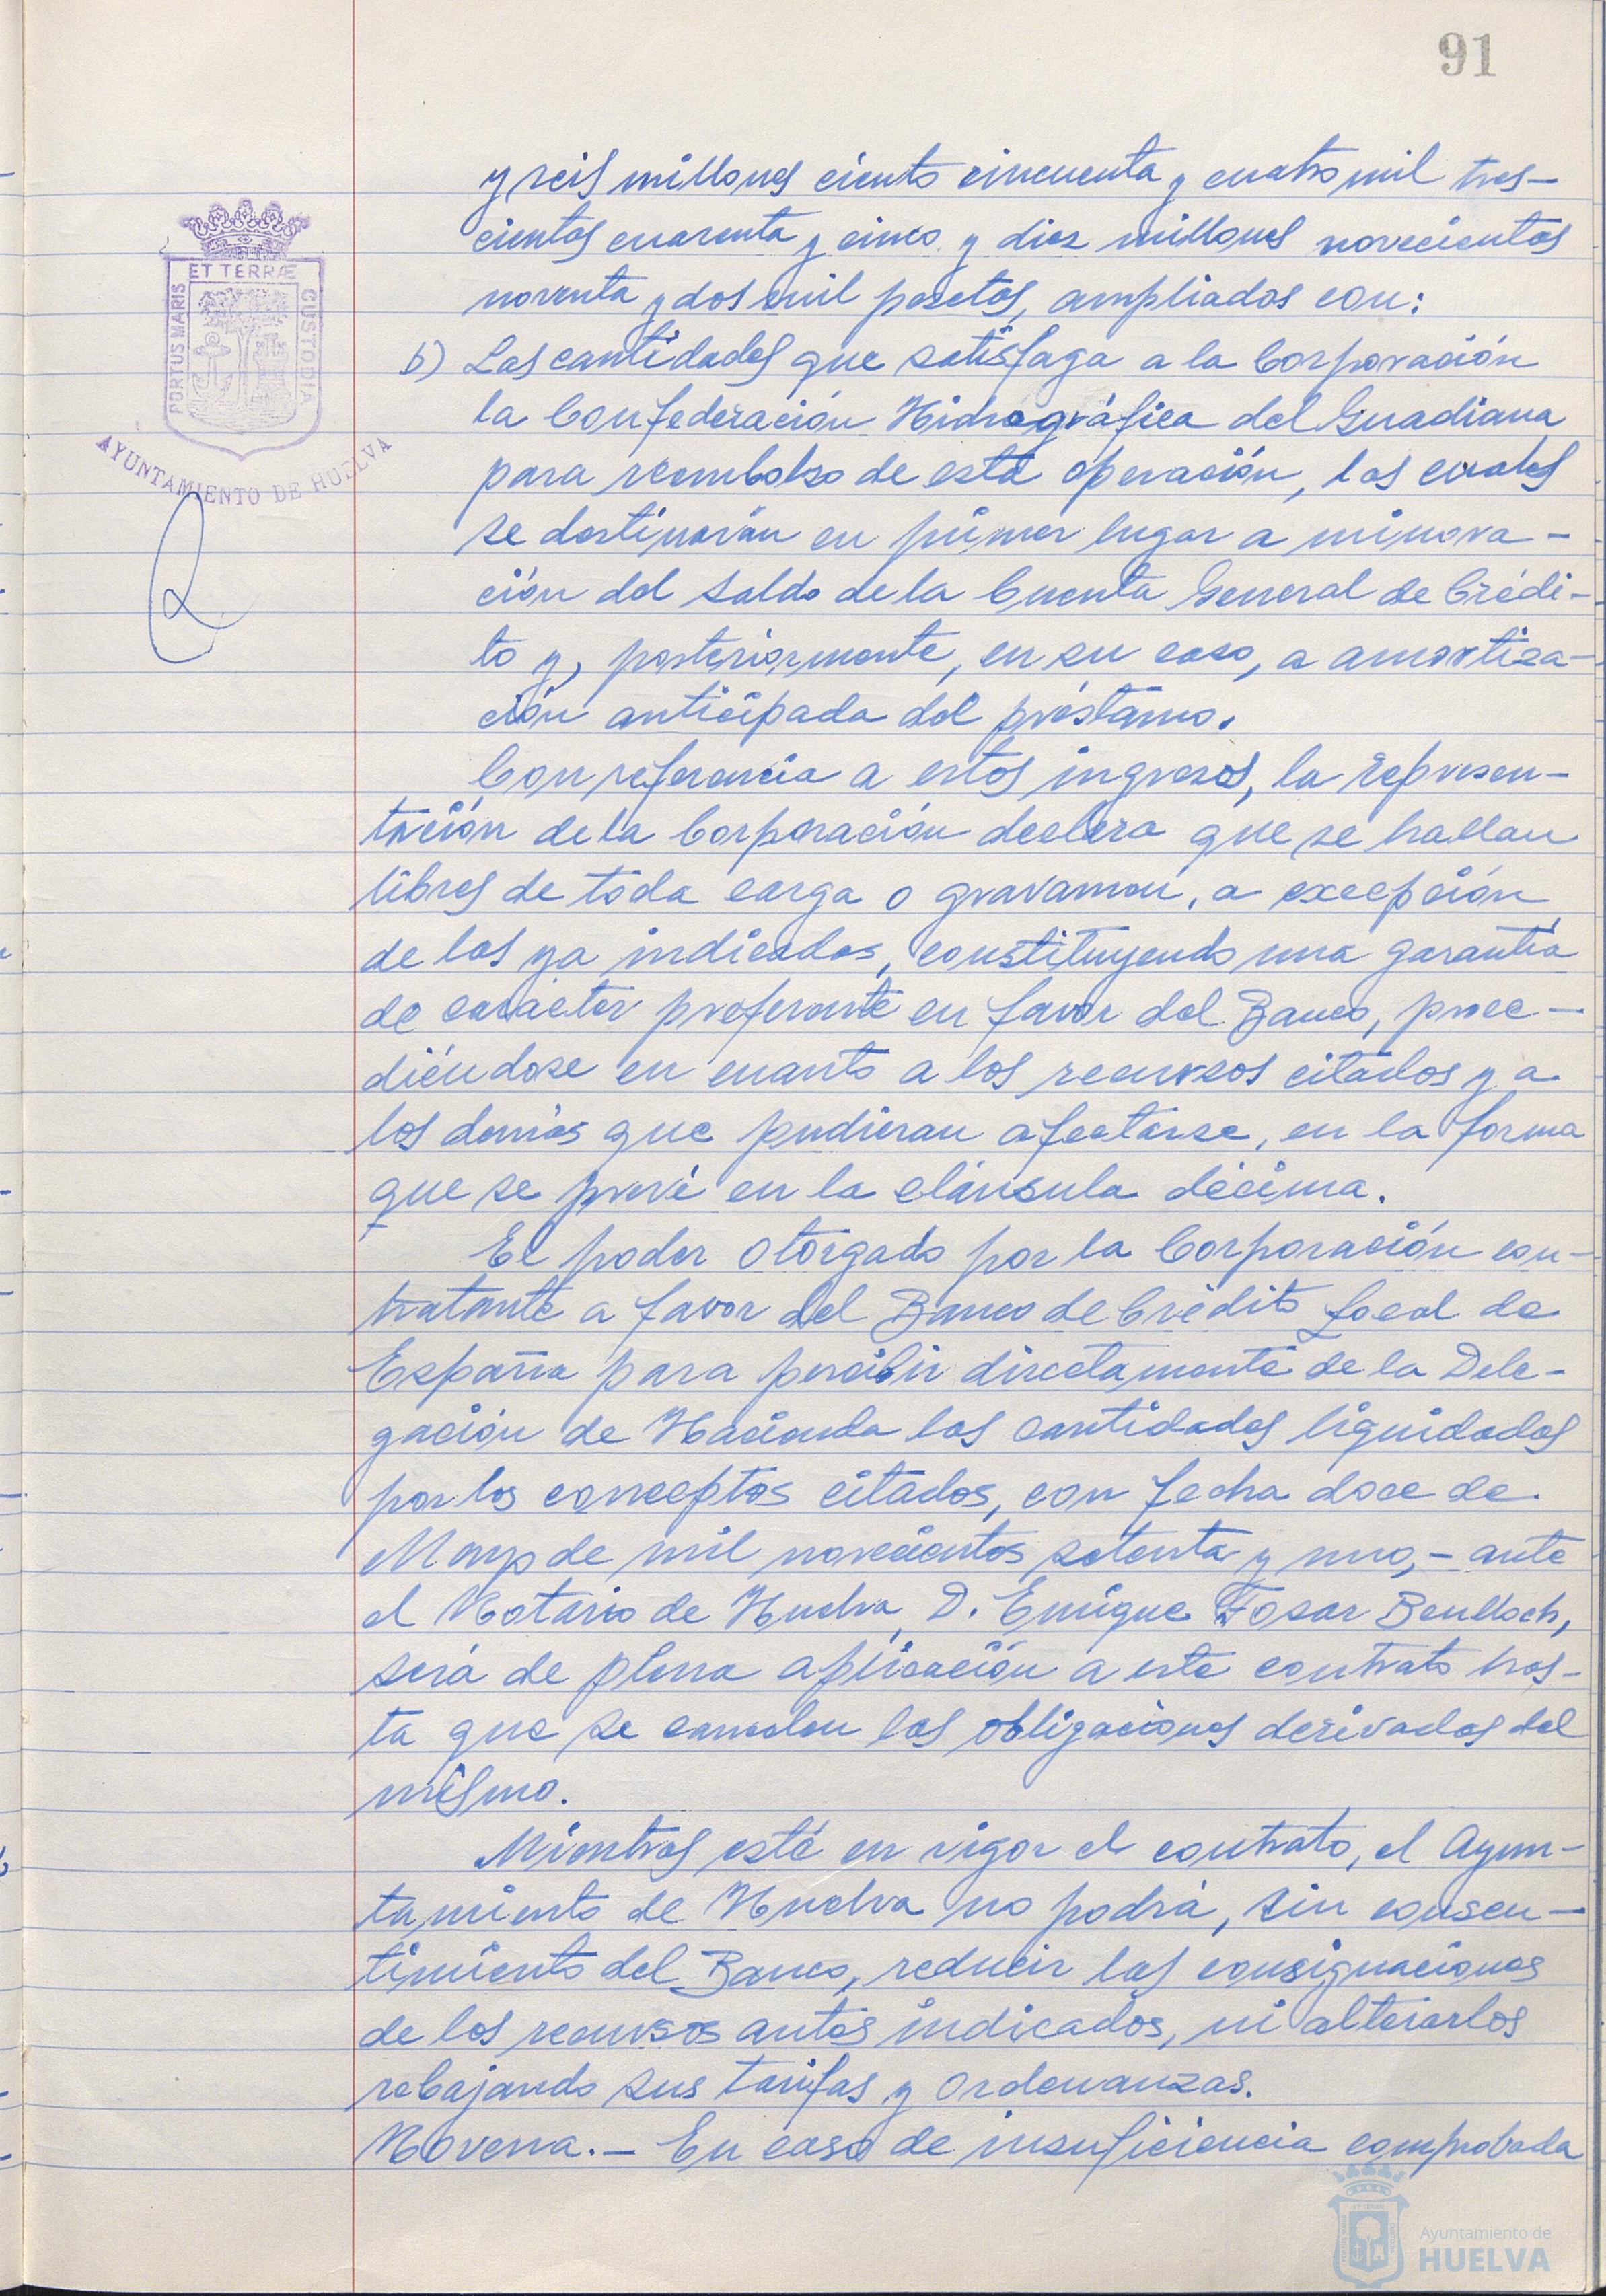 91
y seis millones ciento cincuenta y cuatro mil tres-
cientas cuarenta y cinco y diez millones novecientas
noventa y dos mil pesetas, ampliados con:
b) Las cantidades que satisfaga a la Corporación
la Confederación Hidrográfica del Guadiana
para reembolso de esta operación, las cuales
se destinarán en primer lugar a minora-
ción del saldo de la Cuenta General de Crédi-
to y, posteriormente, en su caso, a amortiza-
ción anticipada del préstamo.
Con referencia a estos ingresos, la represen-
tación de la Corporación declara que se hallan
libres de toda carga o gravamen, a excepción
de las ya indicadas, constituyendo una garantía
de carácter preferente en favor del Banco, proce-
diéndose en cuanto a los recursos citados y a
los demás que pudieran afectarse, en la forma
que se prevé en la cláusula décima.
El poder otorgado por la Corporación con-
tratante a favor del Banco de Crédito Local de
España para percibir directamente de la Dele-
gación de Hacienda las cantidades liquidadas
por los conceptos citados, con fecha doce de
Mayo de mil novecientos setenta y uno,- ante
el Notario de Huelva, D. Enrique Fosar Benlloch,
será de plena aplicación a este contrato has-
ta que se cancelen las obligaciones derivadas del
mismo.
Mientras esté en vigor el contrato, el Ayun-
tamiento de Huelva no podrá, sin consen-
timiento del Banco, reducir las consignaciones
de los recursos antes indicados, ni alterarlos
rebajando sus tarifas y Ordenanzas.
Novena.- En caso de insuficiencia comprobada
PORTUS MARIS
ET TERRÆ
CUSTODIA
AYUNTAMIENTO DE HUELVA
Ayuntamiento de
HUELVA